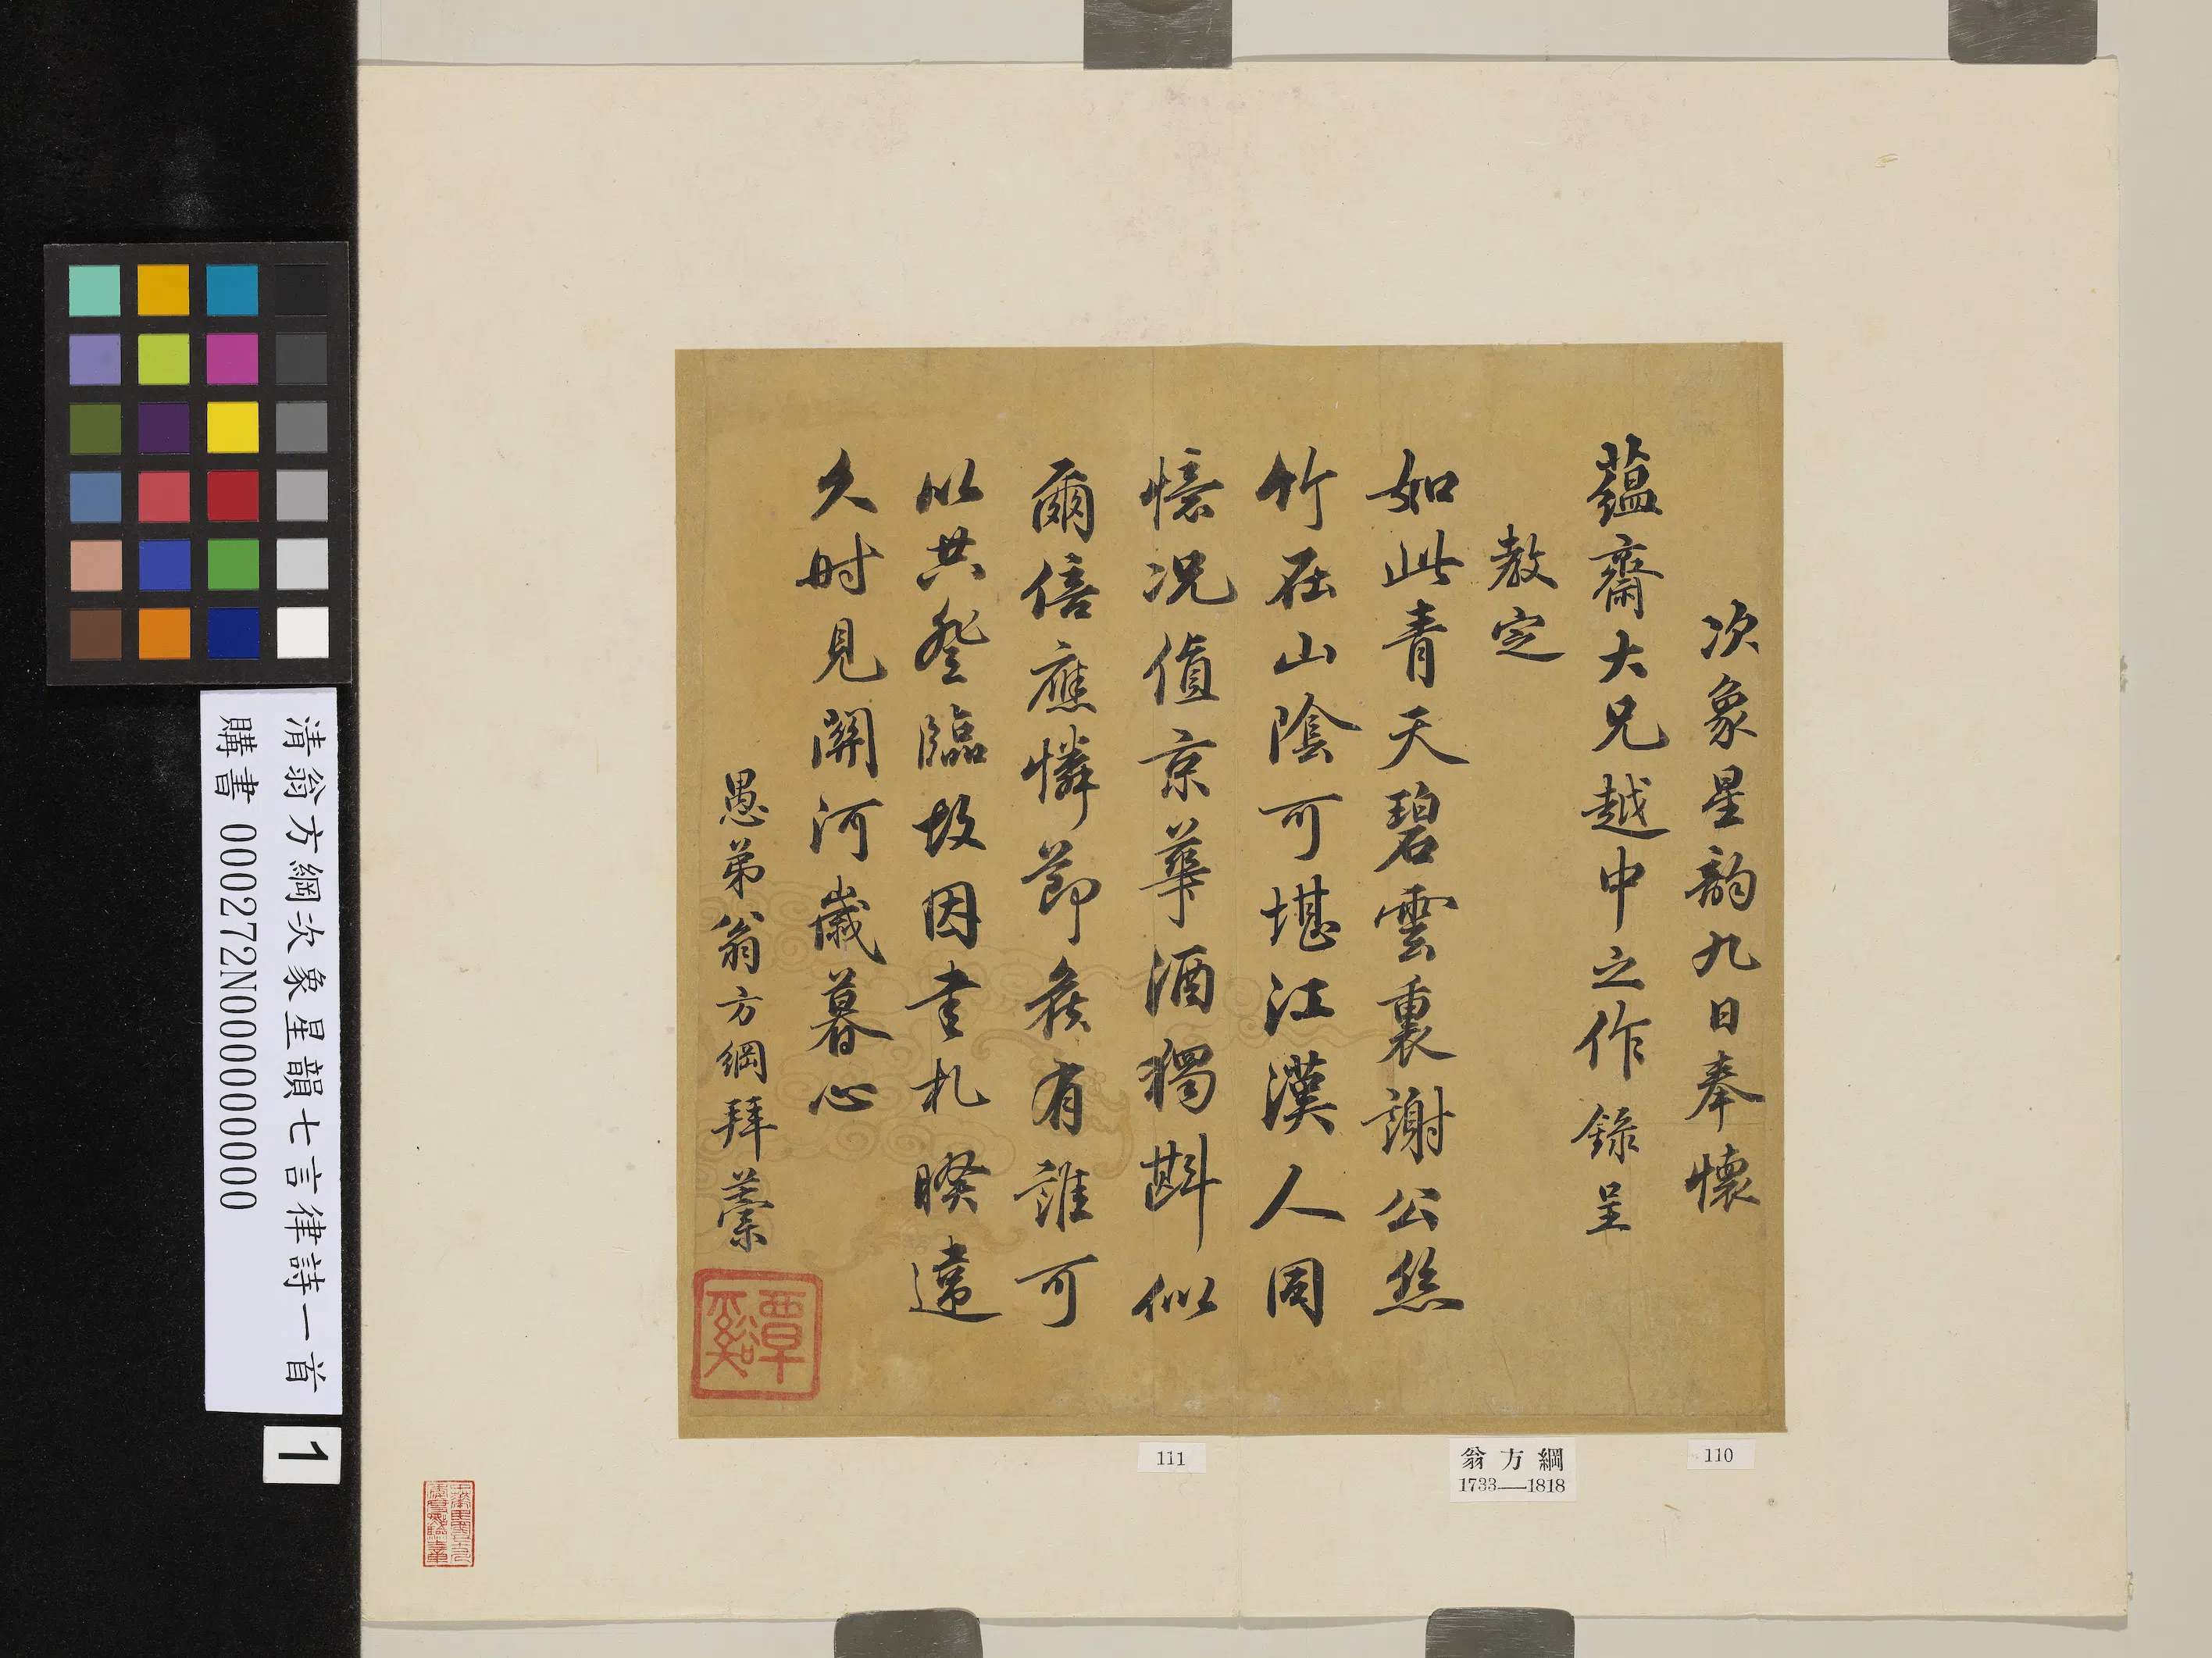 次象星韵九日奉懷
蘊齋大兄越中之作錄呈
教定
如此青天碧雲裏謝公絲
竹在山陰可堪江漢人同
憶況值京華酒獨斟似
爾倍應憐節候有誰可
以共登臨故因書札暌違
久时見關河歲暮心
愚弟翁方綱拜藳
覃谿
110
翁方綱
1733—1818
111
清翁方綱次象星韻七言律詩一首
購書 000272N000000000
1